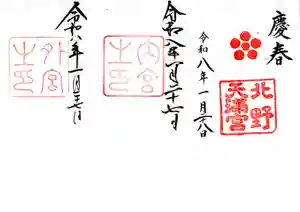 慶春
北野
天満宮
令和八年一月二十八日
令和八年一月二十七日
内宮
之印
令和八年一月二十七日
外宮
之印